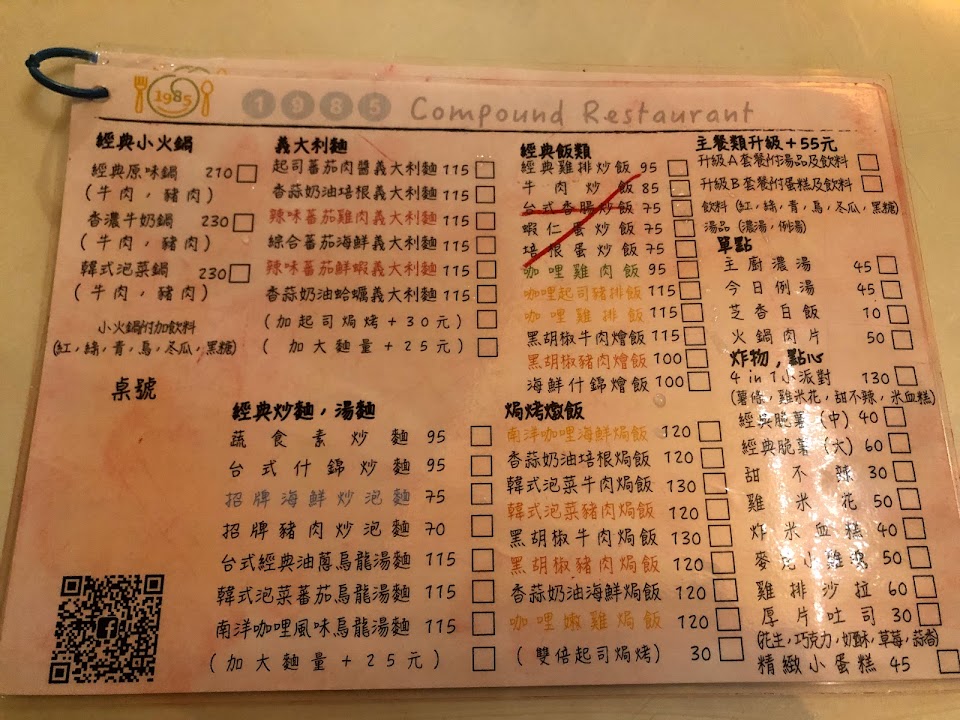 1985
1985 Compound Restaurant
經典小火鍋
經典原味鍋 210
(牛肉，豬肉)
香濃牛奶鍋 230
(牛肉，豬肉)
韓式泡菜鍋 230
(牛肉，豬肉)
小火鍋附加飲料
(紅，綠，青，烏，冬瓜，黑糖)
桌號
義大利麵
起司蕃茄肉醬義大利麵 115
香蒜奶油培根義大利麵 115
辣味蕃茄雞肉義大利麵 115
綜合蕃茄海鮮義大利麵 115
辣味蕃茄鮮蝦義大利麵 115
香蒜奶油蛤蠣義大利麵 115
(加起司焗烤+30元)
(加大麵量+25元)
經典飯類
經典雞排炒飯 95
牛肉炒飯 85
台式香腸炒飯 75
蝦仁蛋炒飯 75
培根蛋炒飯 75
咖哩雞肉飯 95
咖哩起司豬排飯 115
咖哩雞排飯 115
黑胡椒牛肉燴飯 115
黑胡椒豬肉燴飯 100
海鮮什錦燴飯 100
主餐類升級+55元
升級A套餐附湯品及飲料
升級B套餐附蛋糕及飲料
飲料(紅，綠，青，烏，冬瓜，黑糖)
湯品(濃湯，例湯)
單點
主廚濃湯 45
今日例湯 45
芝香白飯 10
火鍋肉片 50
炸物，點心
4 in 1小派對 130
(薯條，雞米花，甜不辣，米血糕)
經典脆薯(中) 40
經典脆薯(大) 60
甜不辣 30
雞米花 50
炸米血糕 40
麥克小雞塊 50
雞排沙拉 60
厚片吐司 30
(花生，巧克力，奶酥，草莓，蒜香)
精緻小蛋糕 45
經典炒麵，湯麵
蔬食素炒麵 95
台式什錦炒麵 95
招牌海鮮炒泡麵 75
招牌豬肉炒泡麵 70
台式經典油蔥烏龍湯麵 115
韓式泡菜蕃茄烏龍湯麵 115
南洋咖哩風味烏龍湯麵 115
(加大麵量+25元)
焗烤燉飯
南洋咖哩海鮮焗飯 120
香蒜奶油培根焗飯 120
韓式泡菜牛肉焗飯 130
韓式泡菜豬肉焗飯 120
黑胡椒牛肉焗飯 130
黑胡椒豬肉焗飯 120
香蒜奶油海鮮焗飯 120
咖哩嫩雞焗飯 120
(雙倍起司焗烤) 30